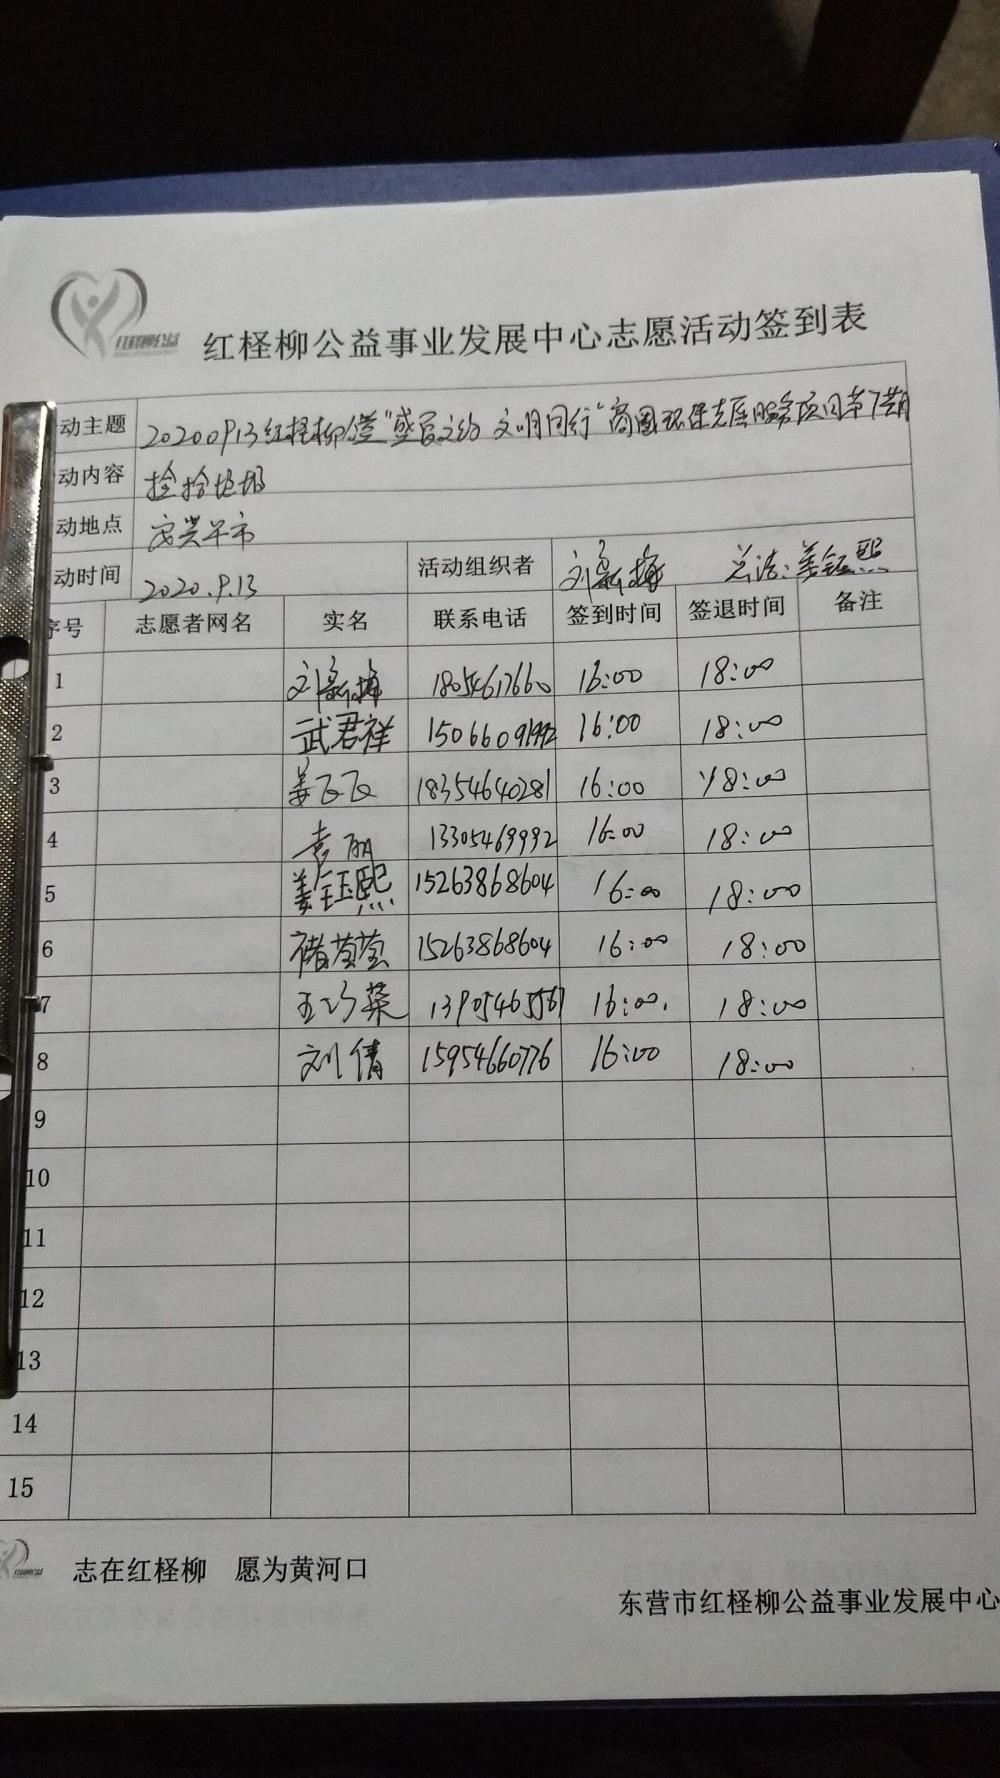 红柽柳公益
红柽柳公益事业发展中心志愿活动签到表
动主题 20200913红柽柳 文明同行"商圈环保志愿服务项目第7期
动内容 捡拾垃圾
动地点
动时间 2020.9.13 活动组织者 刘新梅 姜钰熙
序号 志愿者网名 实名 联系电话 签到时间 签退时间 备注
1 刘新梅 18054617660 16:00 18:00
2 武君祥 15066091992 16:00 18:00
3 姜飞飞 18354640281 16:00 18:00
4 袁丽 13305469992 16:00 18:00
5 姜钰熙 15263868604 16:00 18:00
6 褚莹莹 15263868604 16:00 18:00
7 13905465567 16:00. 18:00
8 刘倩 15954660776 16:00 18:00
9
10
11
12
13
14
15
志在红柽柳 愿为黄河口
东营市红柽柳公益事业发展中心